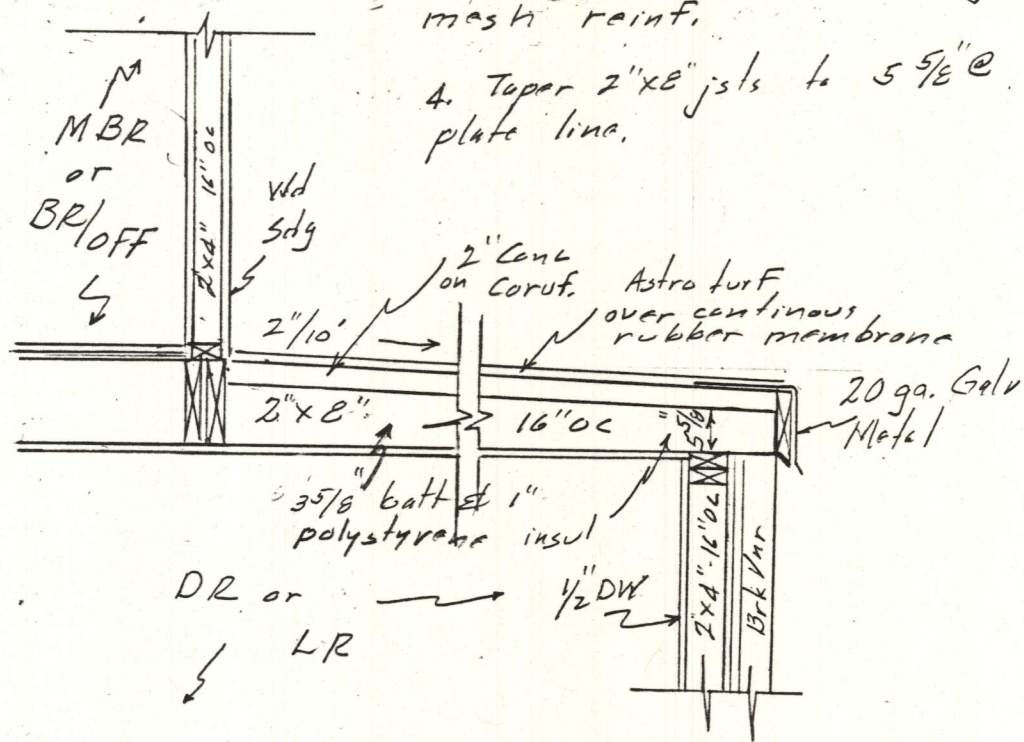 mesh reinf.
4. Taper 2"x8" jsts to 5 5/8" @
plate line.
MBR
or
BR/OFF
2"x4" 16" OC
Wd
Sdg
2" Conc
on Coruf.
Astro turf
over continous
rubber membrane
2"/10'
20 ga. Galv
Metal
2"x8"
16" OC
5 5/8"
3 5/8" batt & 1"
polystyrene insul
DR or
LR
1/2" DW
2"x4"-16"OC
Brk Vnr